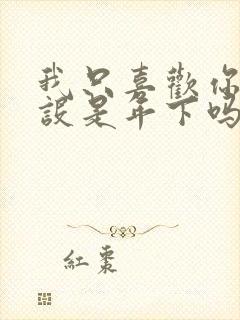 我只喜歡你
設是年下嗎
紅棗